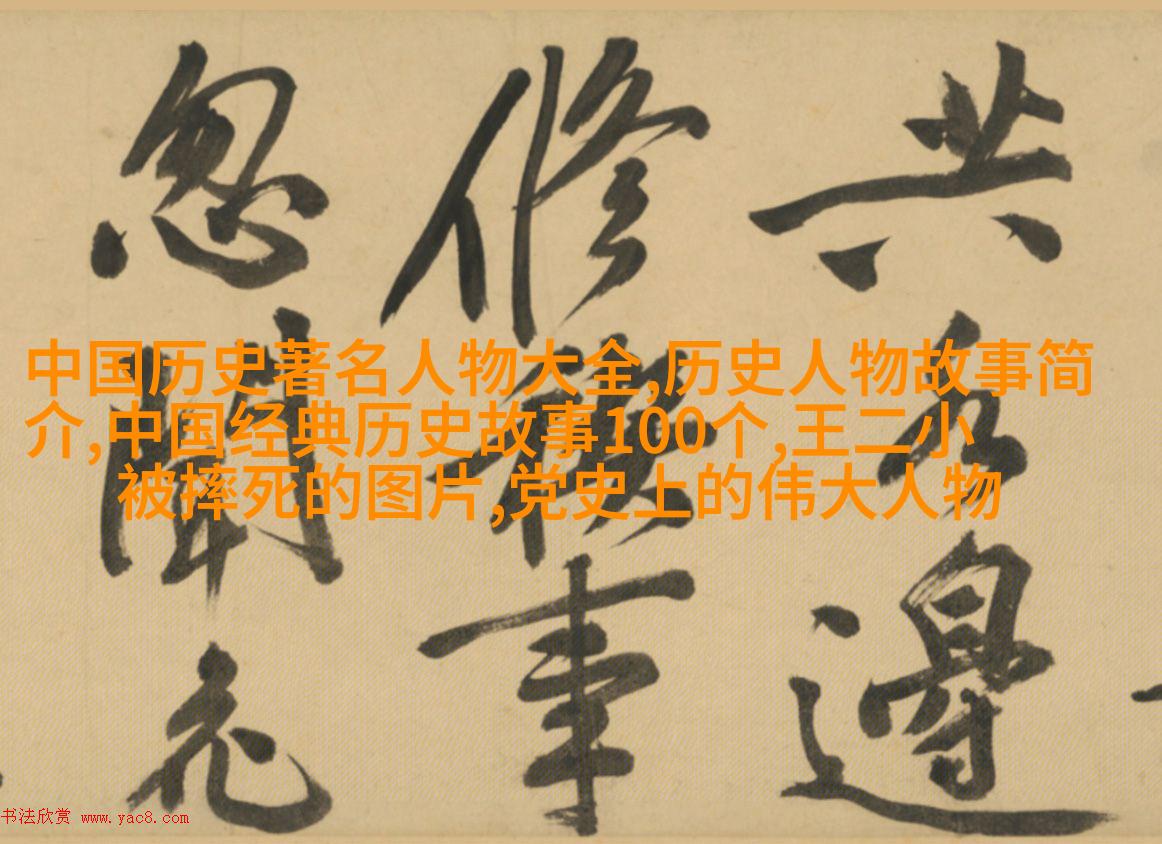 共 邊
修禊事
忽聞
中国历史著名人物大全,历史人物故事简
介,中国经典历史故事100个,王二小
被摔死的图片,党史上的伟大人物
书法欣赏 www.yac8.com